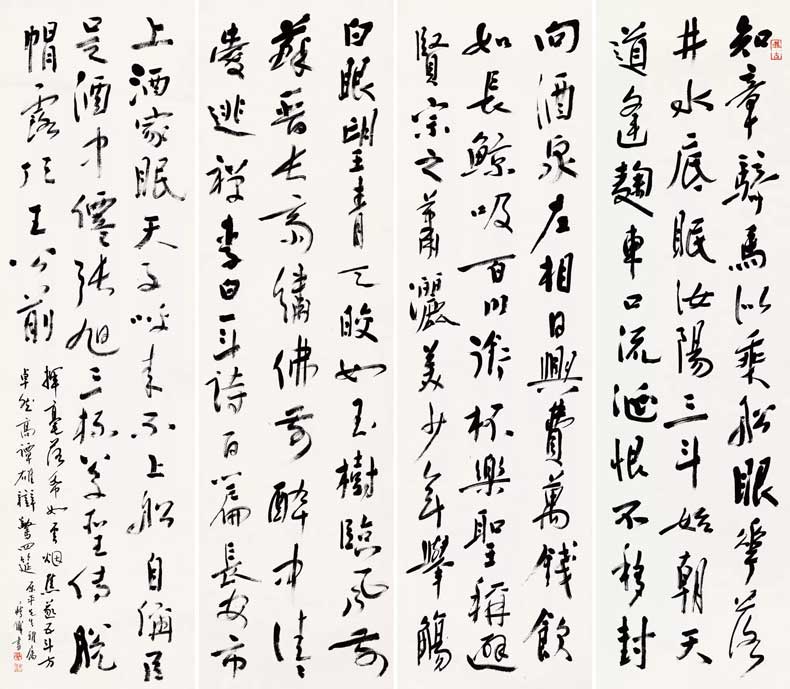 知章騎馬似乘船眼花落
井水底眠汝陽三斗始朝天
道逢麴車口流涎恨不移封
向酒泉左相日興費萬錢飲
如長鯨吸百川銜杯樂聖稱避
賢宗之蕭灑美少年舉觴
白眼望青天皎如玉樹臨風前
蘇晉長齋繡佛前醉中往往
愛逃禪李白一斗詩百篇長安市
上酒家眠天子呼來不上船自稱臣
是酒中僊張旭三杯草聖傳脫
帽露頂王公前
揮毫落帋如雲烟焦遂五斗方
卓然高譚雄辯驚四筵